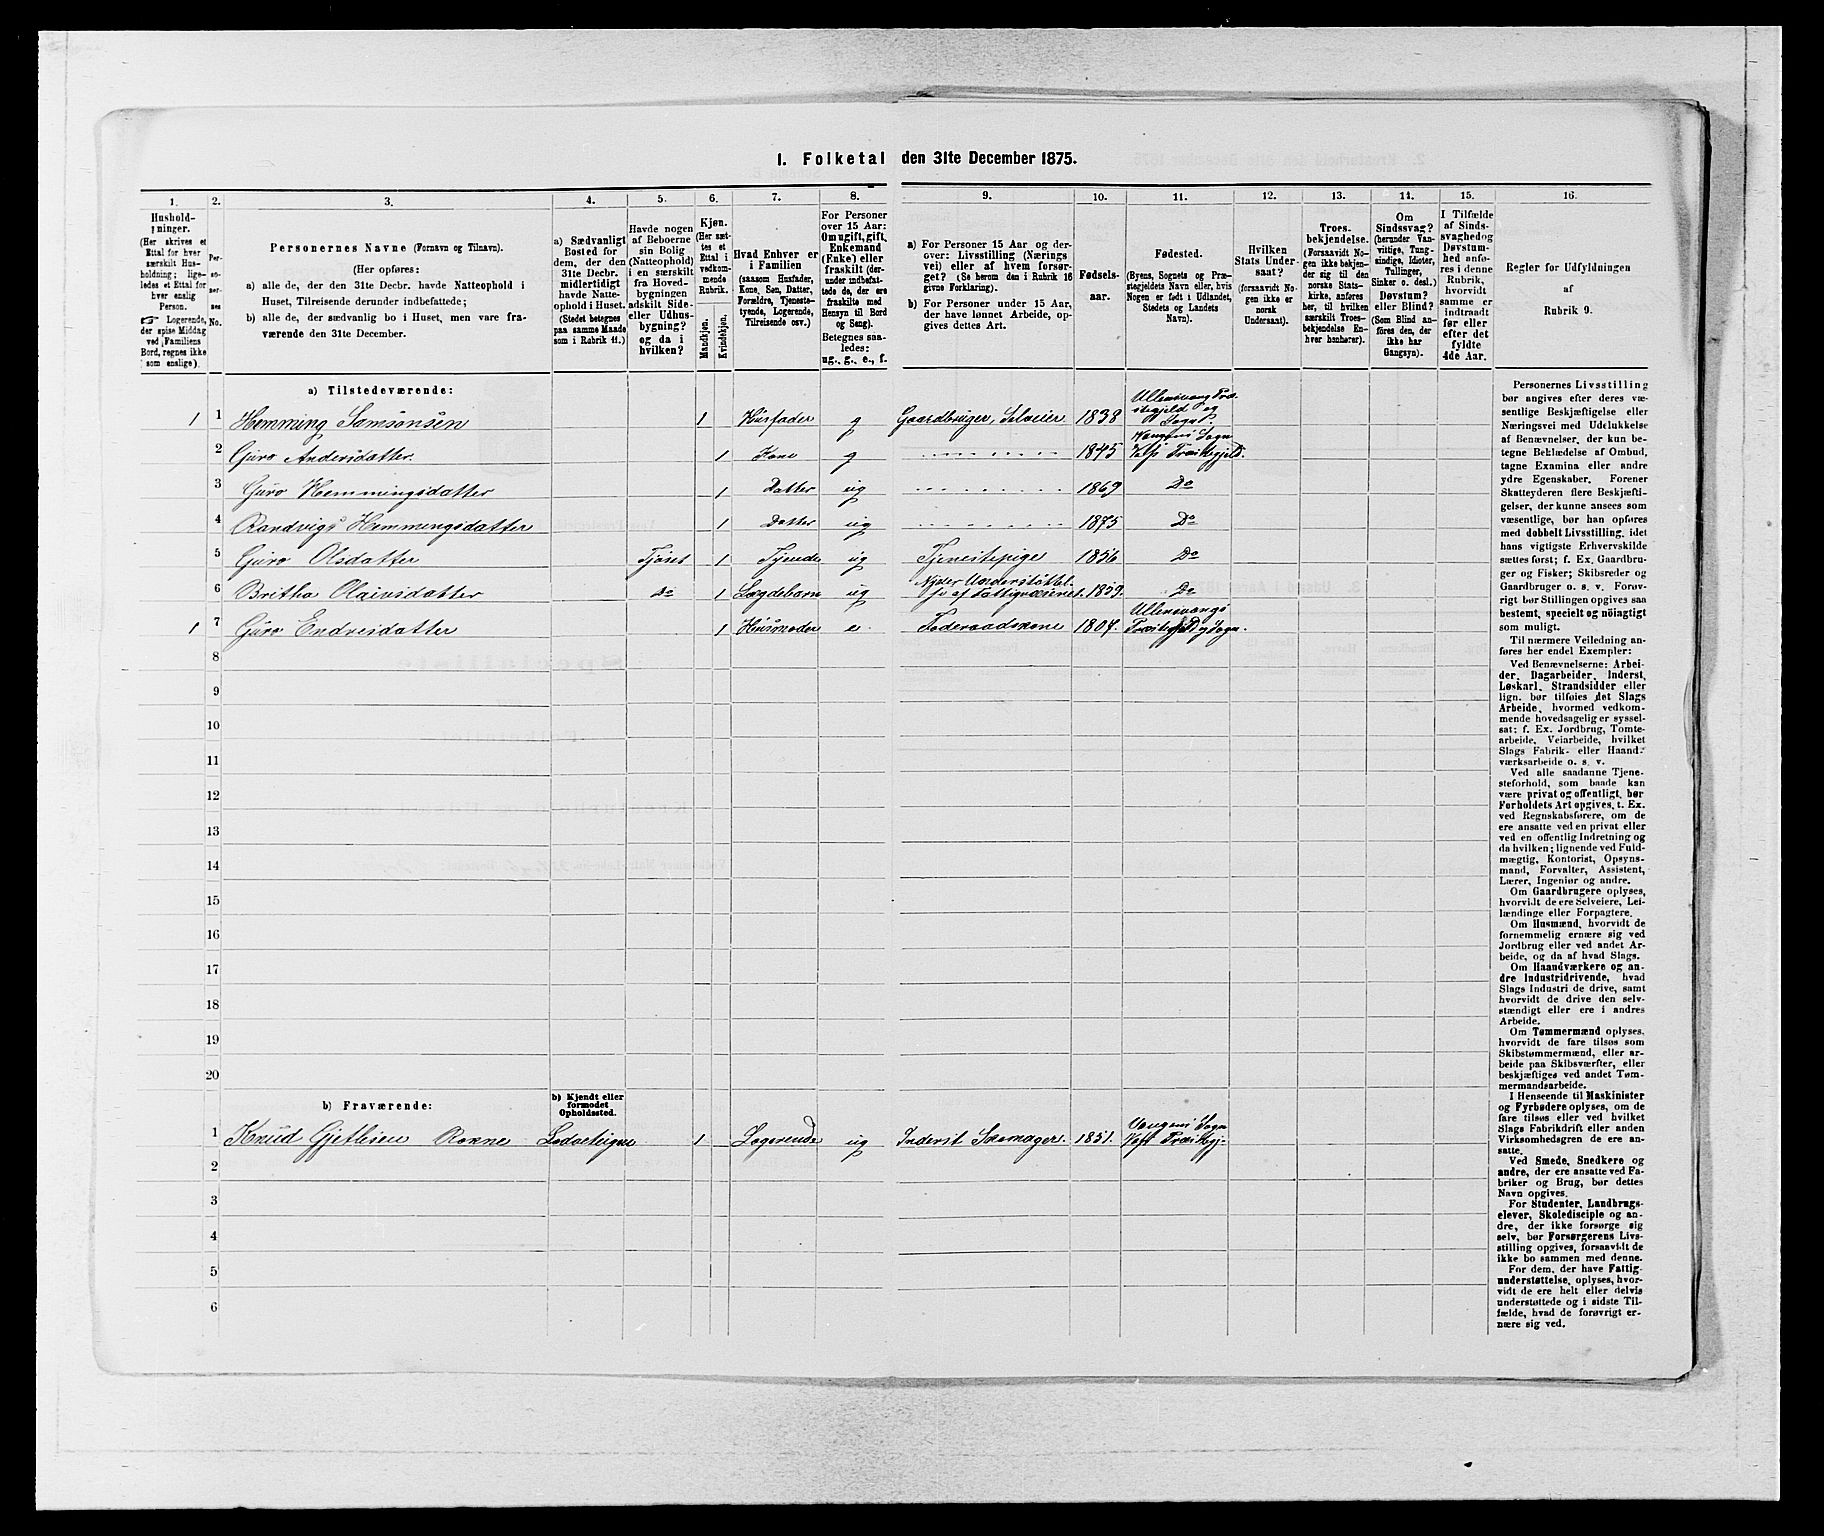 1. Folketal den 31te December 1875.
1. 2. 3. 4. 5. 6. 7. 8. 9. 10. 11. 12. 13. 14. 15. 16.
Hushold-
ninger.
(Her skrives et
Ettal for hver
særskilt Hus-
holdning; lige-
ledes et Ettal for
hver enslig
Person.
☞ Logerende,
der spise Middag
ved Familiens
Bord, regnes ikke
som enslige).
Per-
so-
ner-
nes
No.
Personernes Navne (Fornavn og Tilnavn).
(Her opføres:
a) alle de, der den 31te Decbr. havde Natteophold i
Huset, Tilreisende derunder indbefattede;
b) alle de, der sædvanlig bo i Huset, men vare fra-
værende den 31te December.
a) Sædvanligt
Bosted for
dem, der den
31te Decbr.
midlertidigt
havde Natte-
ophold i Huset.
(Stedet betegnes
paa samme Maade
som i Rubrik 11.)
Havde nogen
af Beboerne
sin Bolig
(Natteophold)
i en særskilt
fra Hoved-
bygningen
adskilt Side-
eller Udhus-
bygning?
og da i
hvilken?
Kjøn.
(Her sæt-
tes et
Ettal i
vedkom-
mende
Rubrik.
Mandkjøn.
Kvindekjøn.
Hvad Enhver er
i Familien
(saasom Husfader,
Kone, Søn, Datter,
Forældre, Tjeneste-
tyende, Logerende,
Tilreisende osv.)
For Personer
over 15 Aar:
Om ugift, gift,
Enkemand
(Enke) eller
fraskilt (der-
under indbefat-
tede de, der ere
fraskilte med
Hensyn til Bord
og Seng).
Betegnes saa-
ledes:
ug., g., e., f.
a) For Personer 15 Aar og der-
over: Livsstilling (Nærings
vei) eller af hvem forsør-
get? (Se herom den i Rubrik 16
givne Forklaring).
b) For Personer under 15 Aar,
der have lønnet Arbeide, op-
gives dettes Art.
Fødsels-
aar.
Fødested.
(Byens, Sognets og Præ-
stegjeldets Navn eller, hvis
Nogen er født i Udlandet,
Stedets og Landets
Navn).
Hvilken
Stats Under-
saat?
(forsaavidt No-
gen ikke er
norsk
Undersaat).
Troes-
bekjendelse.
(Forsaavidt No-
gen ikke bekjen-
der sig til den
norske Stats-
kirke, anføres
her, til hvilken
særskilt Troes-
bekjendelse En-
hver henhører).
Om
Sindssvag?
(herunder Van-
vittige, Tung-
sindige, Idioter,
Tullinger,
Sinker o. desl.)
Døvstum?
eller Blind?
(Som Blind an-
føres den, der
ikke har
Gangsyn).
I Tilfælde
af Sinds-
svaghed og
Døvstum-
hed anfø-
res i denne
Rubrik,
hvorvidt
samme er
indtraadt
før eller
efter det
fyldte
4de Aar.
Regler for Udfyldningen
af
Rubrik 9.
a) Tilstedeværende:
1 1 Hemming Samsonsen 1 Husfader g Gaardbruger, Selveier 1838 Ullensvang Præ-
stegjeld og
Sogn.
2 Guro Andersdatter 1 Kone g 1845 Vangens Sogn
Vofs Præstegjeld.
3 Guro Hemmingsdatter 1 Datter ug 1869 Do
4 Randvig Hemmingsdatter 1 Datter ug 1875 Do
5 Guro Olsdatter 1 Tyende ug Tjenestepige 1856 Do
6 Britha Olaivsdatter Do 1 Lægdebarn ug Nyder Understøttel-
se af Fattigvæsenet. 1859. Do
1 7 Guro Endresdatter 1 Husmoder e. Foderaadskone 1807. Ullensvangs
Præstegjeld og Sogn.
8
9
10
11
12
13
14
15
16
17
18
19
20
b) Fraværende:
b) Kjendt eller
formodet
Opholdssted.
1 Knud Gjetleien Rokne 1 Logerende ug Inderst Skomager. 1851. Vangens Sogn
Vofs Præstegj-
2
3
4
5
6
Personernes Livsstilling
bør angives efter deres væ-
sentlige Beskjæftigelse eller
Næringsvei med Udelukkelse
af Benævnelser, der kun be-
tegne Beklædelse af Ombud,
tagne Examina eller andre
ydre Egenskaber. Forener
Skatteyderen flere Beskjæfti-
gelser, der kunne ansees som
væsentlige, bør han opføres
med dobbelt Livsstilling, idet
hans vigtigste Erhvervskilde
sættes først; f. Ex. Gaardbru-
ger og Fisker; Skibsreder og
Gaardbruger o. s. v. Forøv-
rigt bør Stillingen opgives saa
bestemt, specielt og nøiagtigt
som muligt.
Til nærmere Veiledning an-
føres her endel Exempler:
Ved Benævnelserne: Arbei-
der, Dagarbeider, Inderst,
Løskarl, Strandsidder eller
lign. bør tilføies det Slags
Arbeide, hvormed vedkom-
mende hovedsagelig er syssel-
sat; f. Ex. Jordbrug, Tomte-
arbeide, Veiarbeide, hvilket
Slags Fabrik- eller Haand-
værksarbeide o. s. v.
Ved alle saadanne Tjene-
steforhold, som baade kan
være privat og offentligt, bør
Forholdets Art opgives, t. Ex.
ved Regnskabsførere, om de
ere ansatte ved en privat eller
ved en offentlig Indretning og
da hvilken; lignende ved Fuld-
mægtig, Kontorist, Opsyns-
mand, Forvalter, Assistent,
Lærer, Ingeniør og andre.
Om Gaardbrugere oplyses,
hvorvidt de ere Selveiere, Lei-
lændinge eller Forpagtere.
Om Husmænd, hvorvidt de
fornemmelig ernære sig ved
Jordbrug eller ved andet Ar-
beide, og da af hvad Slags.
Om Haandværkere og an-
dre Industridrivende, hvad
Slags Industri de drive, samt
hvorvidt de drive den selv-
stændigt eller ere i andres
Arbeide.
Om Tømmermænd oplyses,
hvorvidt de fare tilsøs som
Skibstømmermænd, eller ar-
beide paa Skibsværfter, eller
beskjæftiges ved andet Tøm-
mermandsarbeide.
I Henseende til Maskinister
og Fyrbødere oplyses, om de
fare tilsøs eller ved hvilket
Slags Fabrikdrift eller anden
Virksomhedsgren de ere an-
satte.
Ved Smede, Snedkere og
andre, der ere ansatte ved Fa-
briker og Brug, bør dettes
Navn opgives.
For Studenter, Landbrugs-
elever, Skoledisciple og an-
dre, der ikke forsørge sig
selv, bør Forsørgerens Livs-
stilling opgives, forsaavidt de
ikke bo sammen med denne.
For dem, der have Fattig-
understøttelse, oplyses, hvor-
vidt de ere helt eller delvis
understøttede og i sidste Til-
fælde, hvad de forøvrigt er-
nære sig ved.